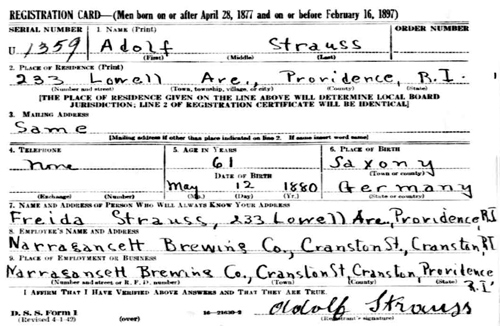 REGISTRATION CARD—(Men born on or after April 28, 1877 and on or before February 16, 1897)
SERIAL NUMBER 1. NAME (Print) ORDER NUMBER
U 1359 Adolf Strauss
(First) (Middle) (Last)
2. PLACE OF RESIDENCE (Print)
233 Lowell Ave., Providence, R.I.
(Number and street) (Town, township, village, or city) (County) (State)
[THE PLACE OF RESIDENCE GIVEN ON THE LINE ABOVE WILL DETERMINE LOCAL BOARD
JURISDICTION; LINE 2 OF REGISTRATION CERTIFICATE WILL BE IDENTICAL]
3. MAILING ADDRESS
Same
[Mailing address if other than place indicated on line 2. If same insert word same]
4. TELEPHONE 5. AGE IN YEARS 6. PLACE OF BIRTH
None 61 Saxony
DATE OF BIRTH (Town or county)
May 12 1880 Germany
(Exchange) (Number) (Mo.) (Day) (Yr.) (State or country)
7. NAME AND ADDRESS OF PERSON WHO WILL ALWAYS KNOW YOUR ADDRESS
Freida Strauss, 233 Lowell Ave, Providence R.I.
8. EMPLOYER'S NAME AND ADDRESS
Narragansett Brewing Co., Cranston St., Cranston, R.I.
9. PLACE OF EMPLOYMENT OR BUSINESS
Narragansett Brewing Co., Cranston St, Cranston, Providence
(Number and street or R. F. D. number) (Town) (County) (State)
R.I.
I AFFIRM THAT I HAVE VERIFIED ABOVE ANSWERS AND THAT THEY ARE TRUE.
D. S. S. Form 1
(Revised 4-1-42) (over) Adolf Strauss